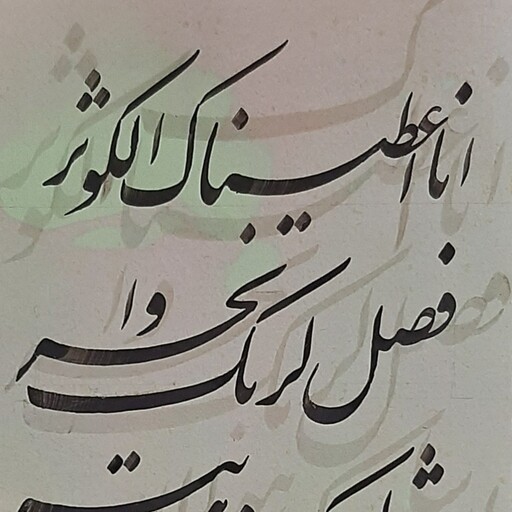 انا اعطیناک الکوثر
فصل لربک وانحر